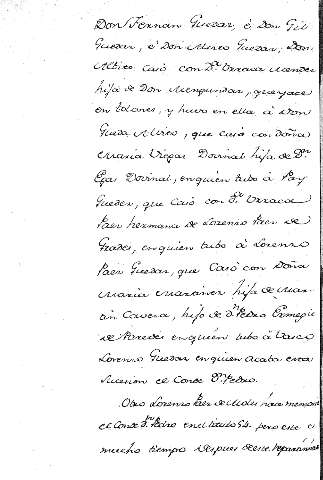 Don Fernan Guedar, è Don Gil
Guedar, è Don Alvito Guedar, Don
Alvito Casò con D.ª Urraca Mendez
hija de Don Menguendar, que yace
en tolones, y huvo en ella à Don
Gueda Alvito, que casò con doña
Maria Viegas Dorinal hija de D.n
Egas Dorinal, en quien tubo à Pay
Guedar, que Casò con D.ª Urraca
Paez hermana de Lorenzo Paez de
en quien tubo à Lorenzo
Paez Guedar, que Casò con Doña
Maria Martinez hija de Mar-
tin Cavera, hijo de D.n Pedro
de Paredes en quien tubo à Vasco
Lorenzo Guedar en quien acaba esta
sucesion el Conde D.n Pedro.
Otro Lorenzo Paez de hace memoria
el Conde D.n Pedro en el titulo 54. pero este es
mucho tiempo despues de este